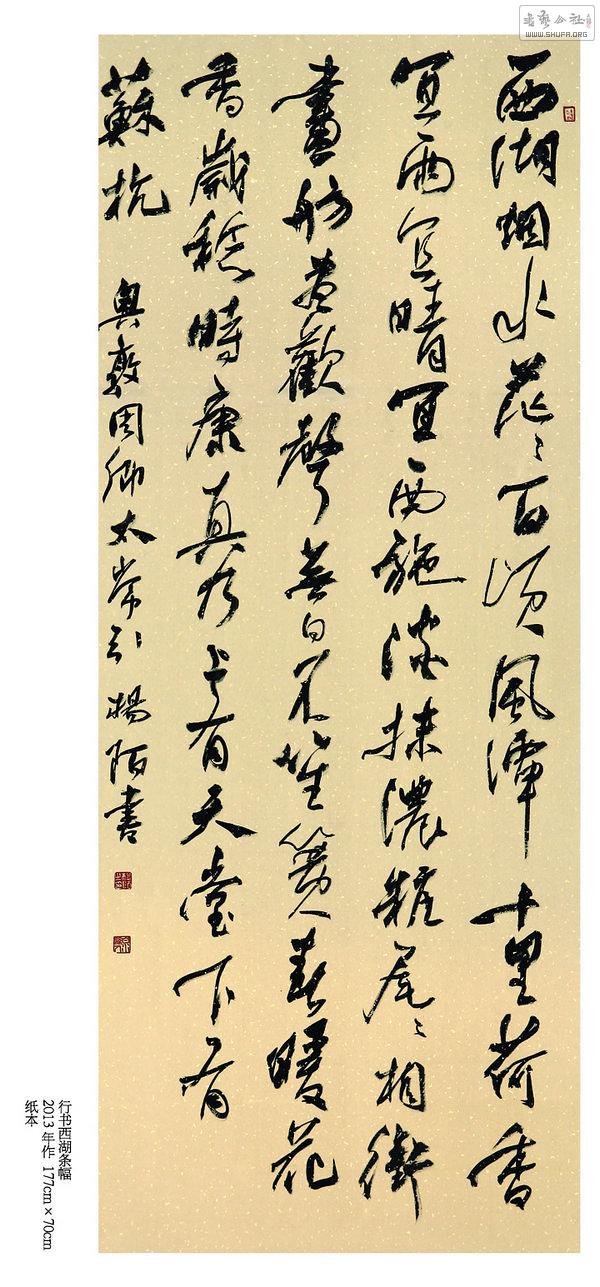 西湖烟水茫〻百頃風潭十里荷香
宜雨宜晴宜西施淡抹濃粧尾〻相銜
畫舫盡歡聲無日不笙簧春暖花
香歲稔時康真乃上有天堂下有
蘇杭 奥敦周卿太常引 楊陌書
行书西湖条幅
2013 年作 177cm×70cm
纸本
书艺公社
WWW.SHUFA.ORG